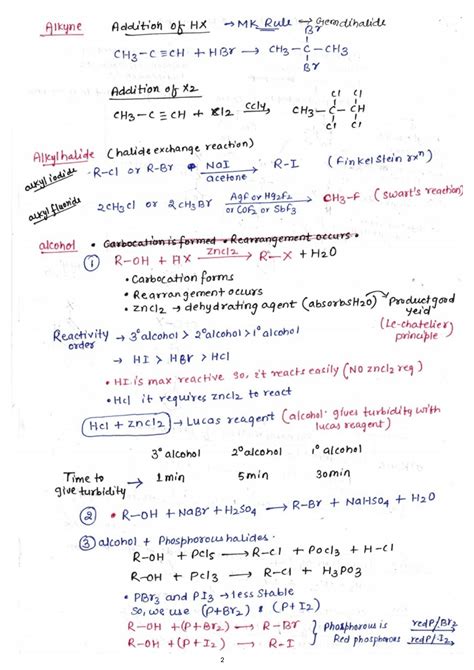 Alkyne Addition of HX → MK Rule → Gemdihalide
Br
CH3-C≡CH + HBr → CH3-C-CH3
Br
Addition of X2
Cl Cl
CH3-C≡CH + Cl2 CCl4 → CH3-C-CH
Cl Cl
Alkylhalide (halide exchange reaction)
alkyl iodide R-Cl or R-Br + NaI acetone → R-I (Finkelstein rxn)
alkyl fluoride 2CH3Cl or 2CH3Br AgF or Hg2F2 or CoF2 or SbF3 → CH3-F (Swart's reaction)
alcohol • Carbocation is formed • Rearrangement occurs •
① R-OH + HX ZnCl2 → R-X + H2O
• Carbocation forms
• Rearrangement occurs
• ZnCl2 → dehydrating agent (absorbs H2O) → Product good yeild
(Le-chatelier principle)
Reactivity order → 3° alcohol > 2° alcohol > 1° alcohol
→ HI > HBr > HCl
• HI is max reactive so, it reacts easily (NO ZnCl2 req)
• HCl it requires ZnCl2 to react
HCl + ZnCl2 → Lucas reagent (alcohol gives turbidity with
lucas reagent)
3° alcohol 2° alcohol 1° alcohol
Time to give turbidity → 1 min 5 min 30 min
② • R-OH + NaBr + H2SO4 → R-Br + NaHSO4 + H2O
③ alcohol + Phosphorous halides.
R-OH + PCl5 → R-Cl + POCl3 + H-Cl
R-OH + PCl3 → R-Cl + H3PO3
• PBr3 and PI3 → less Stable
So, we use (P+Br2) & (P+I2)
R-OH + (P+Br2) → R-Br } Phosphorous is red P/Br2
R-OH + (P+I2) → R-I } Red phosphorous red P/I2
2